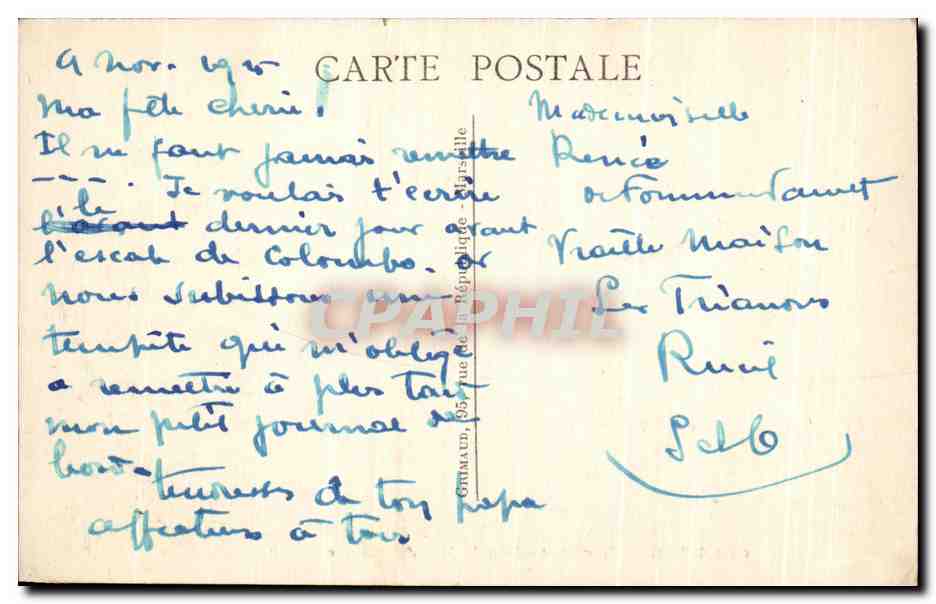 CARTE POSTALE
9 nov.
ma fête cherie,
Il ne faut jamais remettre
---. Je voulais t'écrire
le dernier jour avant
l'escale de Colombo. or
nous subissons une
tempête qui m'oblige
a remettre à plus tard
mon petit journal de
bord.
tendresses de ton papa
affection à tous
Mademoiselle
Renée
Vieille Maison
Les Trianons
Rueil
S et O
GRIMAUD, 95, rue de la République - Marseille
CPAPHIL